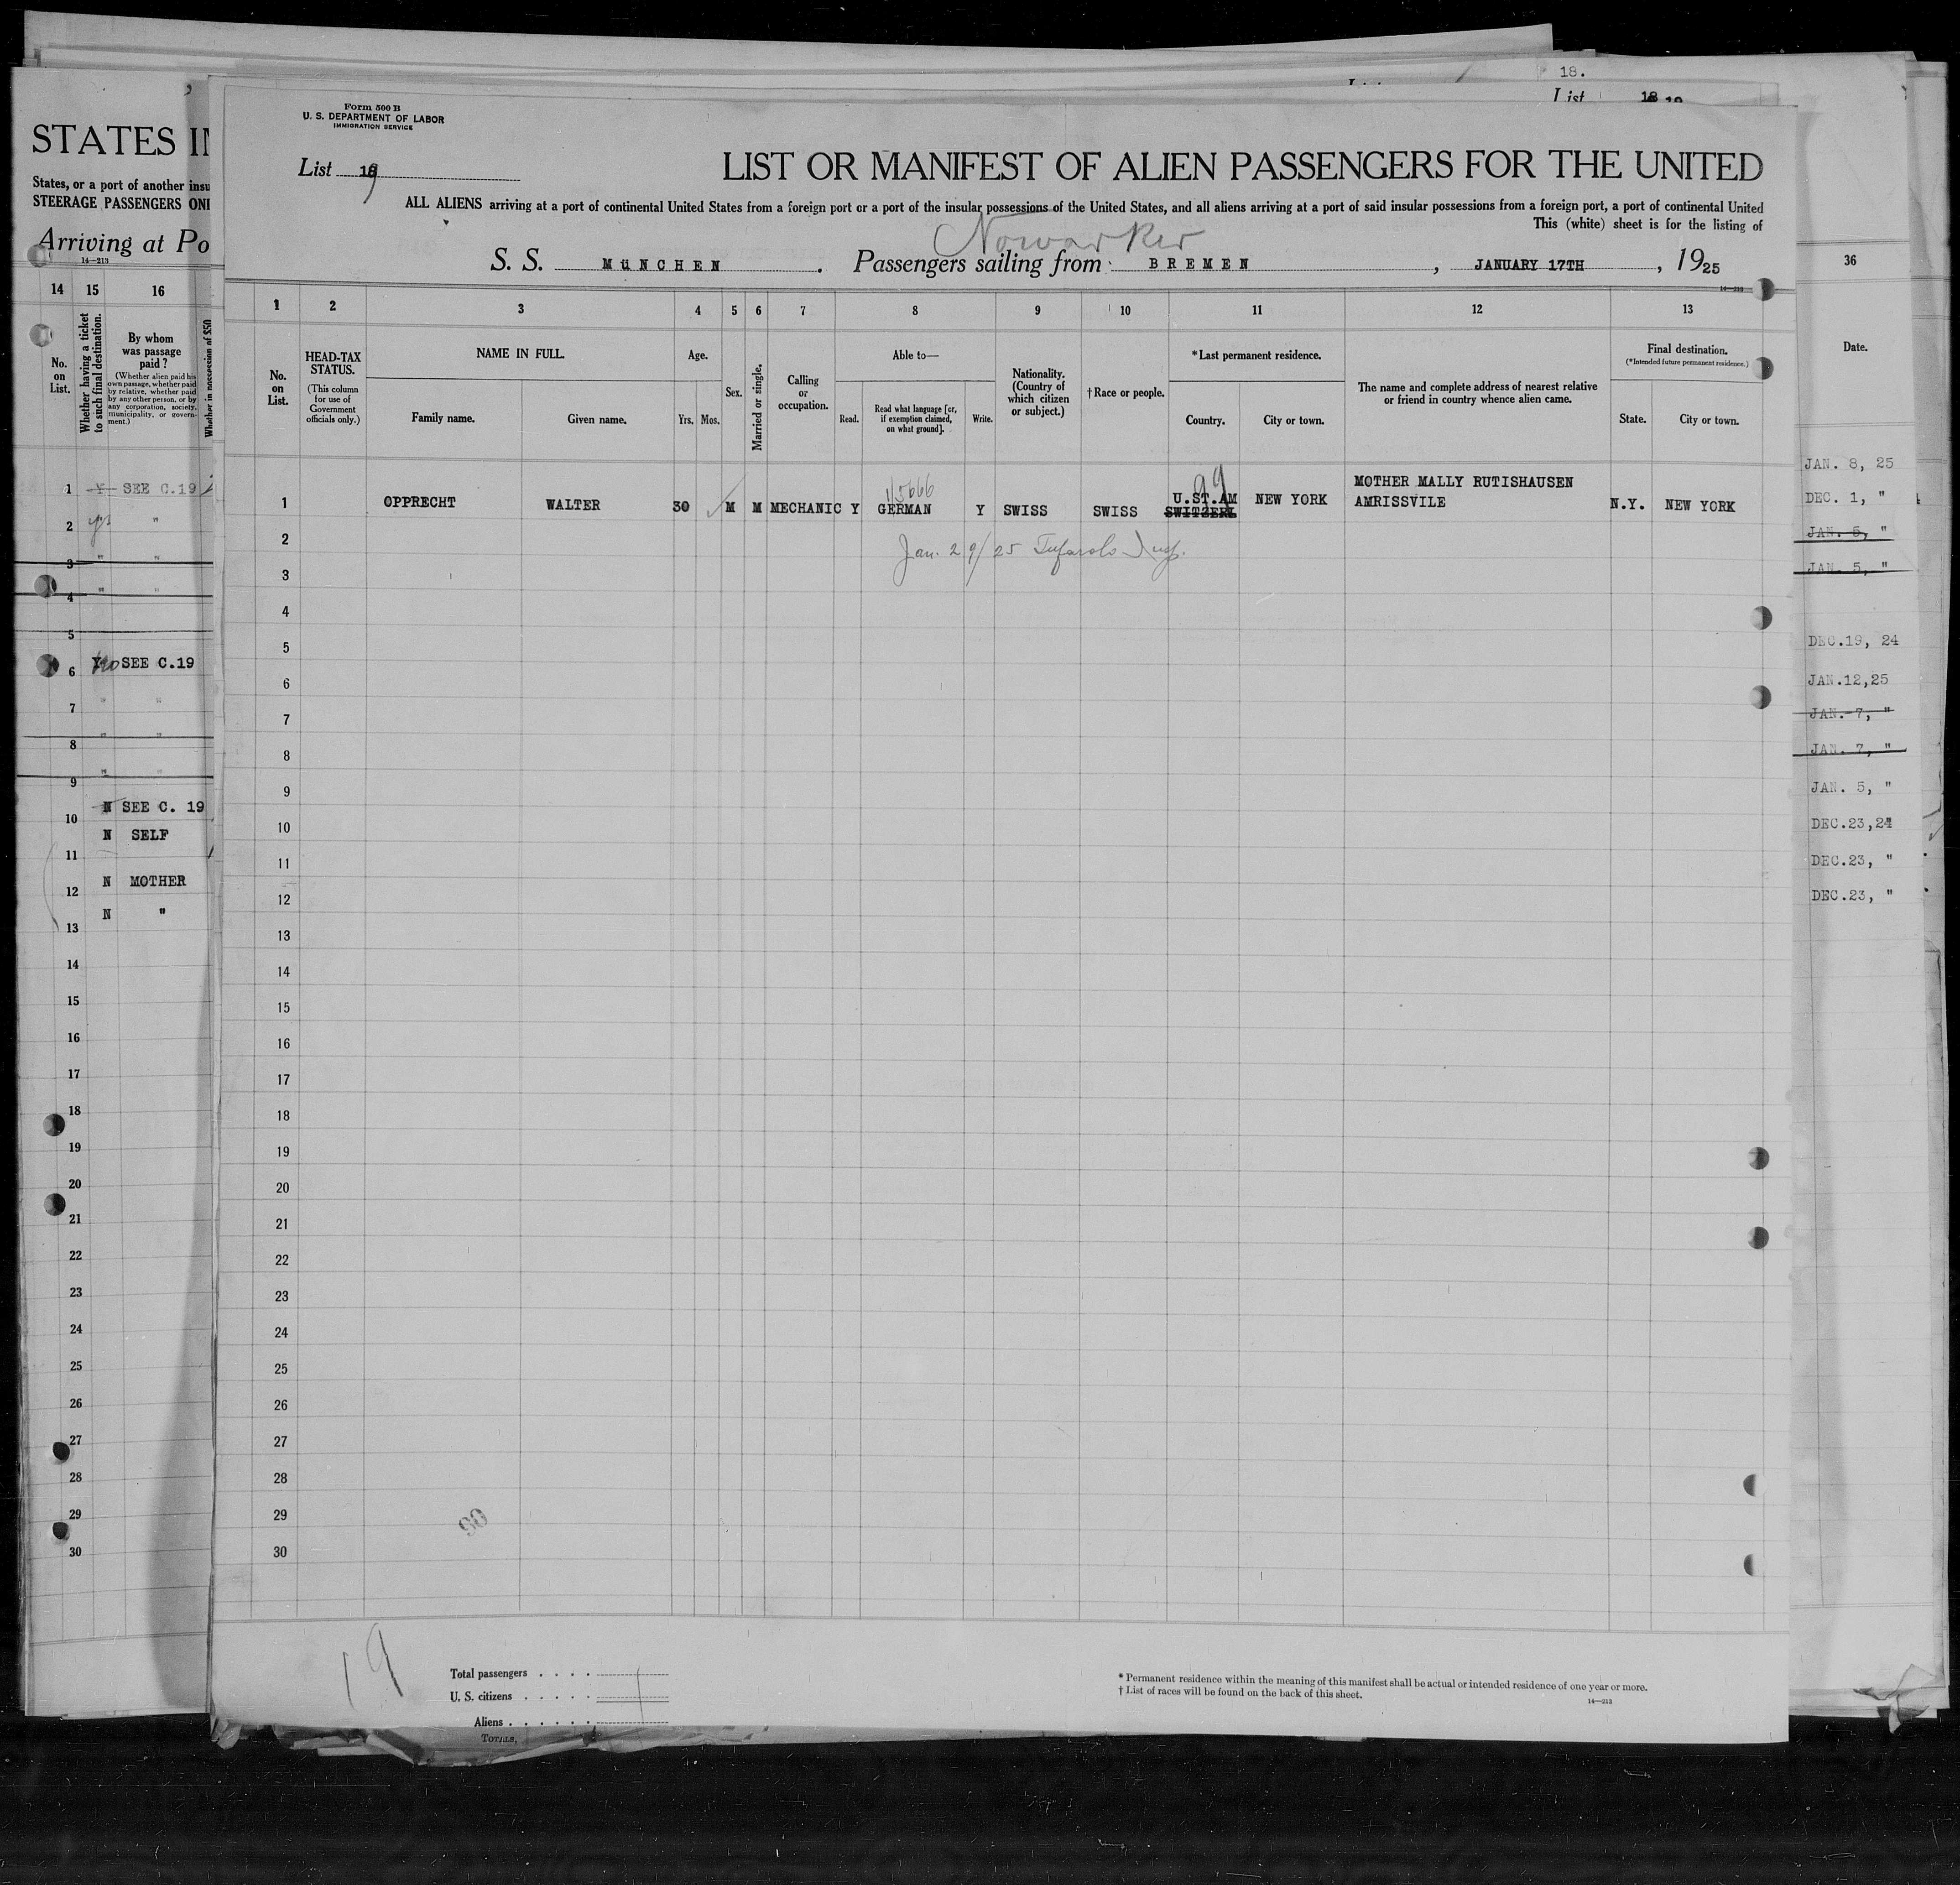 18.
List 18 19
STATES IN
States, or a port of another insu
STEERAGE PASSENGERS ONL
Arriving at Po
14—213
14 15 16
No. on List.
Whether having a ticket to such final destination.
By whom was passage paid?
(Whether alien paid his own passage, whether paid by relative, whether paid by any other person, or by any corporation, society, municipality, or government.)
Whether in possession of $50
1 Y SEE C.19
2 "
3 " "
4 " "
5
6 SEE C.19
7 " "
8 " "
9 " "
10 N SEE C. 19
11 N SELF
12 N MOTHER
13 N "
14
15
16
17
18
19
20
21
22
23
24
25
26
27
28
29
30
Form 500 B
U. S. DEPARTMENT OF LABOR
IMMIGRATION SERVICE
List 19
LIST OR MANIFEST OF ALIEN PASSENGERS FOR THE UNITED
ALL ALIENS arriving at a port of continental United States from a foreign port or a port of the insular possessions of the United States, and all aliens arriving at a port of said insular possessions from a foreign port, a port of continental United
This (white) sheet is for the listing of
S. S. MüNCHEN. Passengers sailing from BREMEN, JANUARY 17TH, 1925
14—213
1 2 3 4 5 6 7 8 9 10 11 12 13
No. on List.
HEAD-TAX STATUS.
(This column for use of Government officials only.)
NAME IN FULL.
Family name. Given name.
Age.
Yrs. Mos.
Sex.
Married or single.
Calling or occupation.
Able to—
Read. Read what language [or, if exemption claimed, on what ground]. Write.
Nationality. (Country of which citizen or subject.)
†Race or people.
*Last permanent residence.
Country. City or town.
The name and complete address of nearest relative or friend in country whence alien came.
Final destination.
(*Intended future permanent residence.)
State. City or town.
99
MOTHER MALLY RUTISHAUSEN
U.ST.AM
1 OPPRECHT WALTER 30 M M MECHANIC Y GERMAN Y SWISS SWISS SWITZERL NEW YORK AMRISSVILE N.Y. NEW YORK
2
Jan. 29/25
3
4
5
6
7
8
9
10
11
12
13
14
15
16
17
18
19
20
21
22
23
24
25
26
27
28
29
30
90
19
Total passengers . . . .
U. S. citizens . . . . .
Aliens . . . . . .
TOTALS,
* Permanent residence within the meaning of this manifest shall be actual or intended residence of one year or more.
† List of races will be found on the back of this sheet.
14—213
36
Date.
JAN. 8, 25
DEC. 1, "
JAN. 5, "
JAN. 5, "
DEC.19, 24
JAN.12,25
JAN. 7, "
JAN. 7, "
JAN. 5, "
DEC.23,24
DEC.23, "
DEC.23, "